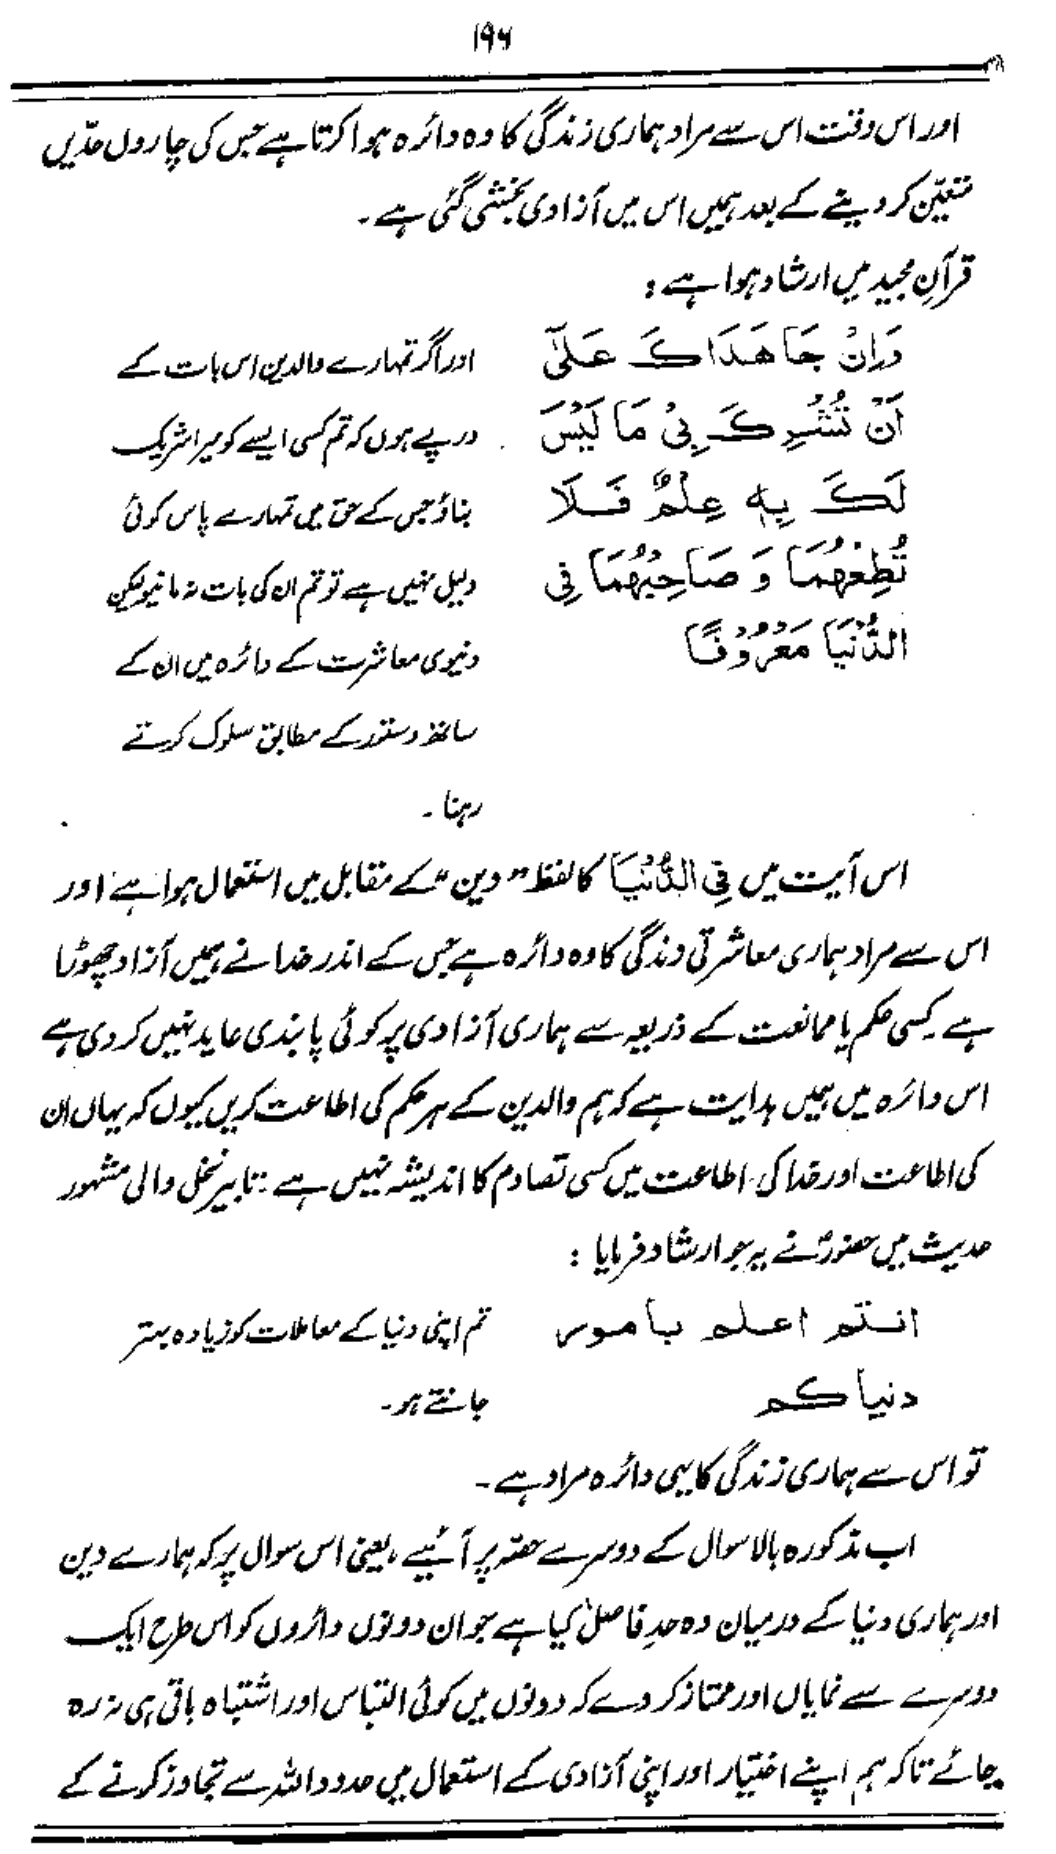 ۱۹۶
اور اس وقت اس سے مراد ہماری زندگی کا وہ دائرہ ہوا کرتا ہے جس کی چاروں حدّیں
متعیّن کر دینے کے بعد ہمیں اس میں آزادی بخشی گئی ہے ۔
قرآنِ مجید میں ارشاد ہوا ہے :
وَاِنْ جَاهَدَاكَ عَلٰٓى
اَنْ تُشْرِكَ بِیْ مَا لَيْسَ
لَكَ بِهٖ عِلْمٌ فَلَا
تُطِعْهُمَا وَ صَاحِبْهُمَا فِی
الدُّنْيَا مَعْرُوْفًا
اور اگر تمہارے والدین اس بات کے
درپے ہوں کہ تم کسی ایسے کو میرا شریک
بناؤ جس کے حق میں تمہارے پاس کوئی
دلیل نہیں ہے تو تم ان کی بات نہ مانیو لیکن
دنیوی معاشرت کے دائرہ میں ان کے
ساتھ دستور کے مطابق سلوک کرتے
رہنا ۔
اس آیت میں فِی الدُّنْيَا کا لفظ "دین" کے مقابل میں استعمال ہوا ہے اور
اس سے مراد ہماری معاشرتی زندگی کا وہ دائرہ ہے جس کے اندر خدا نے ہمیں آزاد چھوڑا
ہے کسی حکم یا ممانعت کے ذریعہ سے ہماری آزادی پر کوئی پابندی عاید نہیں کر دی ہے
اس دائرہ میں ہمیں ہدایت ہے کہ ہم والدین کے ہر حکم کی اطاعت کریں کیوں کہ یہاں ان
کی اطاعت اور خدا کی اطاعت میں کسی تصادم کا اندیشہ نہیں ہے : تابیرِ نخل والی مشہور
حدیث میں حضورؐ نے یہ جو ارشاد فرمایا :
انتم اعلم بامور
دنیاکم
تم اپنی دنیا کے معاملات کو زیادہ بہتر
جانتے ہو ۔
تو اس سے ہماری زندگی کا یہی دائرہ مراد ہے ۔
اب مذکورہ بالا سوال کے دوسرے حصّہ پر آئیے ، یعنی اس سوال پر کہ ہمارے دین
اور ہماری دنیا کے درمیان وہ حدِ فاصل کیا ہے جو ان دونوں دائروں کو اس طرح ایک
دوسرے سے نمایاں اور ممتاز کر دے کہ دونوں میں کوئی التباس اور اشتباہ باقی ہی نہ رہ
جائے تاکہ ہم اپنے اختیار اور اپنی آزادی کے استعمال میں حدود اللہ سے تجاوز کرنے کے